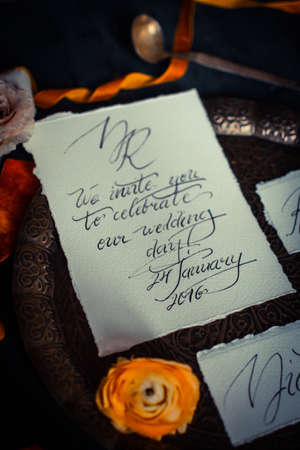 We invite you
to celebrate
our wedding
day!
24 January
2016